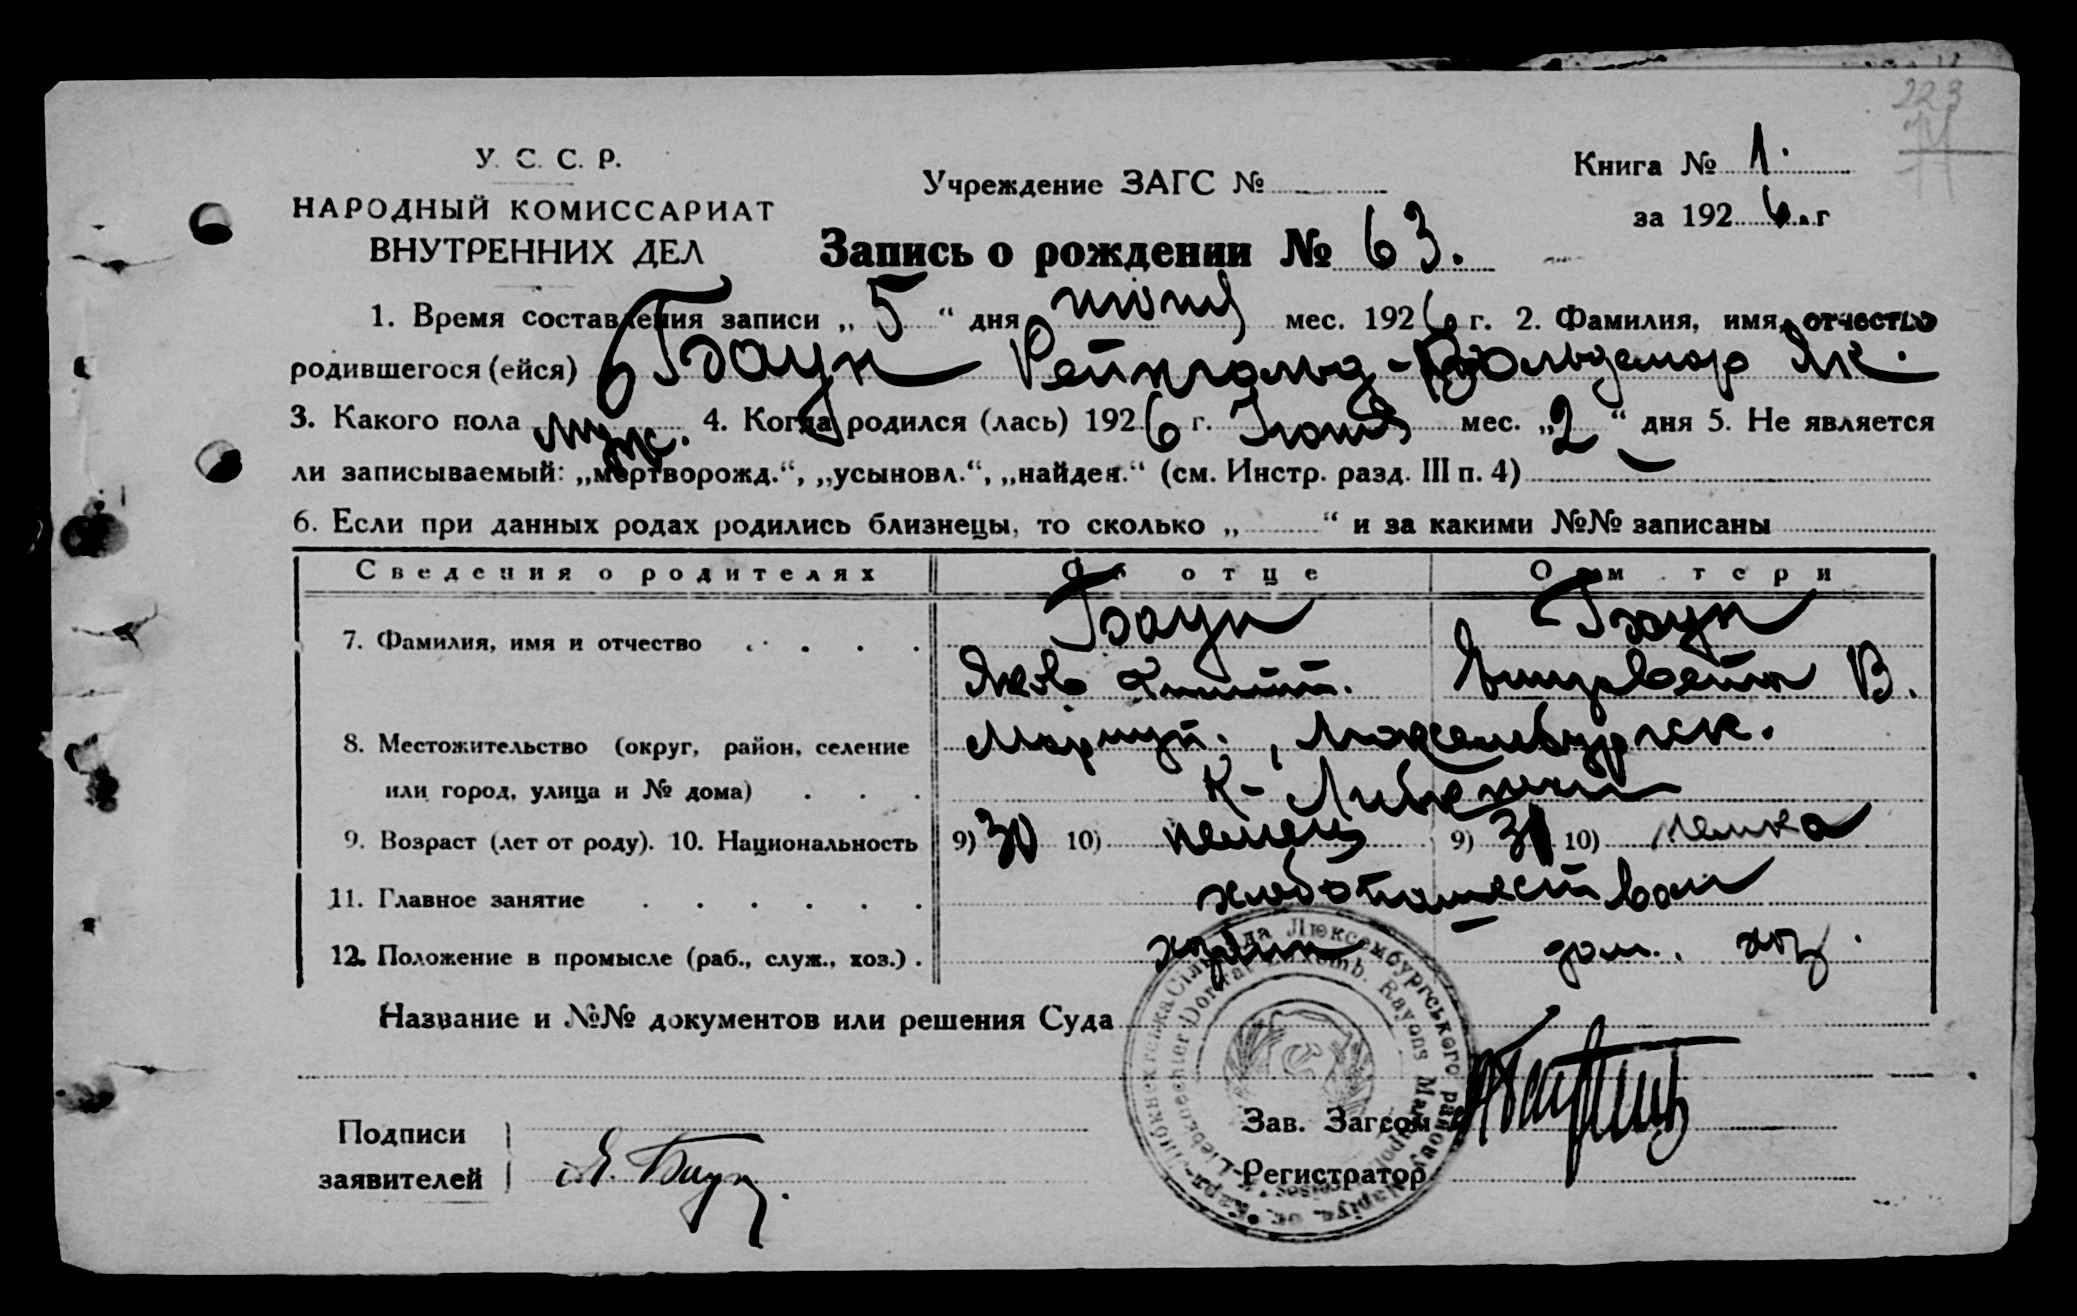 223
У. С. С. Р.
НАРОДНЫЙ КОМИССАРИАТ
ВНУТРЕННИХ ДЕЛ
Учреждение ЗАГС №
Книга № 1.
за 1926 г
Запись о рождении № 63.
1. Время составления записи „5“ дня июня мес. 1926 г. 2. Фамилия, имя, отчество
родившегося (ейся) Браун Рейнгольд-Вольдемар Як.
3. Какого пола муж. 4. Когда родился (лась) 1926 г. Июня мес. „2“ дня 5. Не является
ли записываемый: „мертворожд.“, „усыновл.“, „найден.“ (см. Инстр. разд. III п. 4) —
6. Если при данных родах родились близнецы, то сколько „ “ и за какими №№ записаны
Сведения о родителях Об отце О матери
7. Фамилия, имя и отчество Браун Браун
Яков Елизавета В.
8. Местожительство (округ, район, селение Мариуп., Люксембургск.
или город, улица и № дома) К-Либкнехта
9. Возраст (лет от роду). 10. Национальность 9) 30 10) немец 9) 31 10) немка
11. Главное занятие хлебопашеством
12. Положение в промысле (раб., служ., хоз.) хозяин дом. хоз.
Название и №№ документов или решения Суда
Подписи
заявителей Я. Браун.
Зав. Загсом
Регистратор
Карл-Лібкнехтська Сільрада Люксембургського району Маріуп. ок.
K-Liebknechter Dorfrat Luxemb. Rayons Mariupoler Kreises